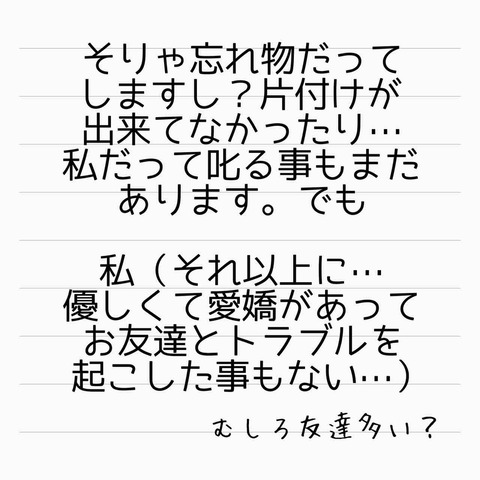 そりゃ忘れ物だって
しますし？片付けが
出来てなかったり…
私だって叱る事もまだ
あります。でも
私（それ以上に…
優しくて愛嬌があって
お友達とトラブルを
起こした事もない…）
むしろ友達多い？